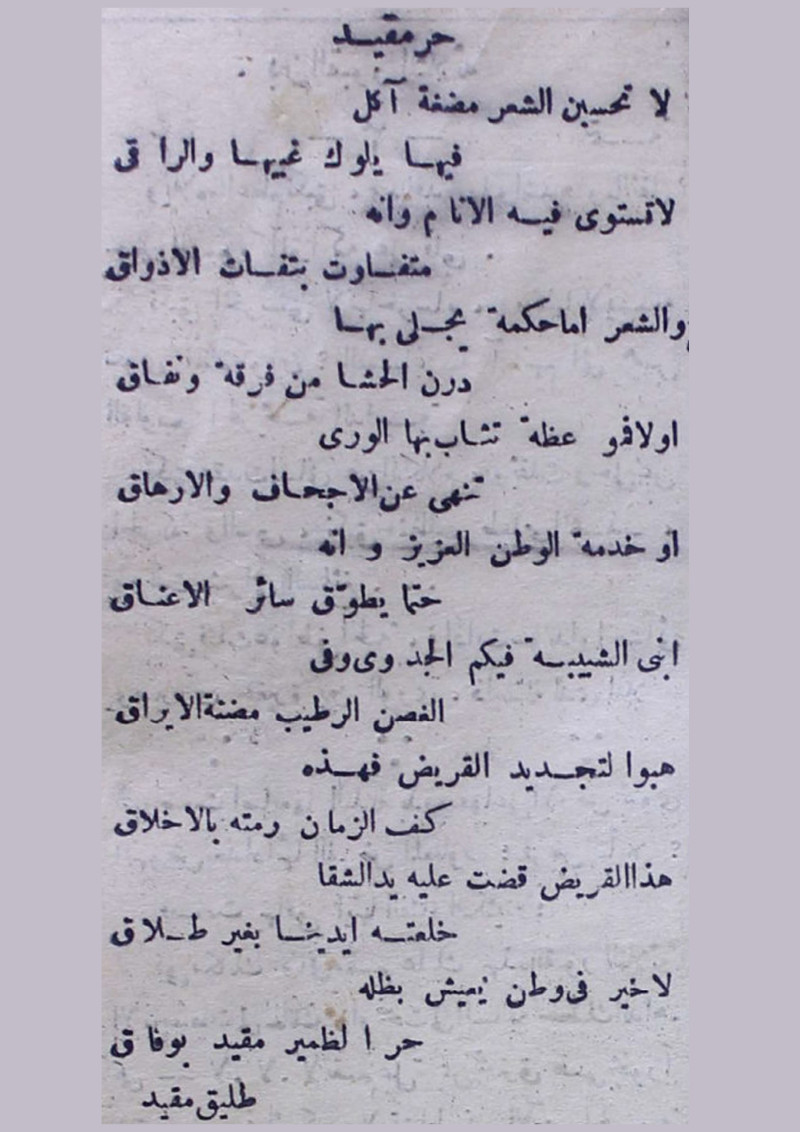 حر مقيـد
لا تحسبن الشعر مضغة آكل
فيهـا يلوك غبيهـا والراقى
لاتستوى فيـه الانام وانه
متفـاوت بتفـاث الاذواق
والشعر اماحكمة يجـلى بهـا
درن الحشـا من فرقة ونفـاق
اولافهو عظة تثـاب بها الورى
تنهى عن الاجحـاف والارهاق
او خدمة الوطن العزيز وانه
حتما يطوّق سائر الاعنـاق
ابنى الشيبـة فيكم الجدوى وفى
الغصن الرطيب مضنة الايراق
هبوا لتجـديد القريض فهـذه
كف الزمان رمته بالاخلاق
هذا القريض قضت عليه يد الشقا
خلعتـه ايدينـا بغير طـلاق
لاخير فى وطن يعيش بظله
حر الظمير مقيد بوفاق
طليق مقيد